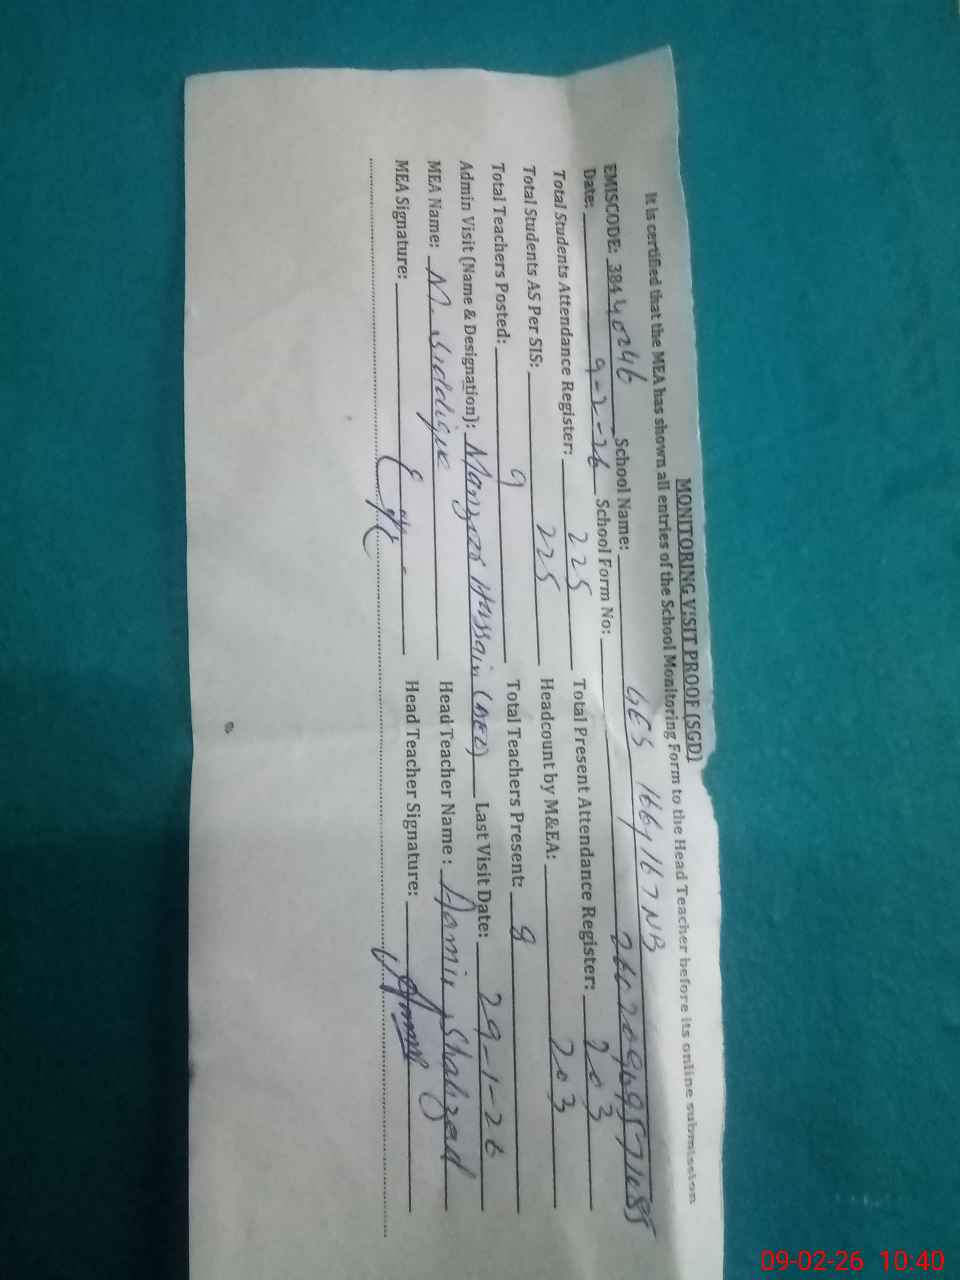 MONITORING VISIT PROOF (SGD)
It is certified that the MEA has shown all entries of the School Monitoring Form to the Head Teacher before its online submission
EMISCODE: 38440246 School Name: GES 166/167NB
Date: 9-2-26 School Form No:
Total Students Attendance Register: 225 Total Present Attendance Register: 203
Total Students AS Per SIS: 225 Headcount by M&EA: 203
Total Teachers Posted: 9 Total Teachers Present: 8
Admin Visit (Name & Designation): Manzoor Hussain (AEO) Last Visit Date: 29-1-26
MEA Name: M. Siddique Head Teacher Name: Aamir Shahzad
MEA Signature: Head Teacher Signature:
09-02-26 10:40